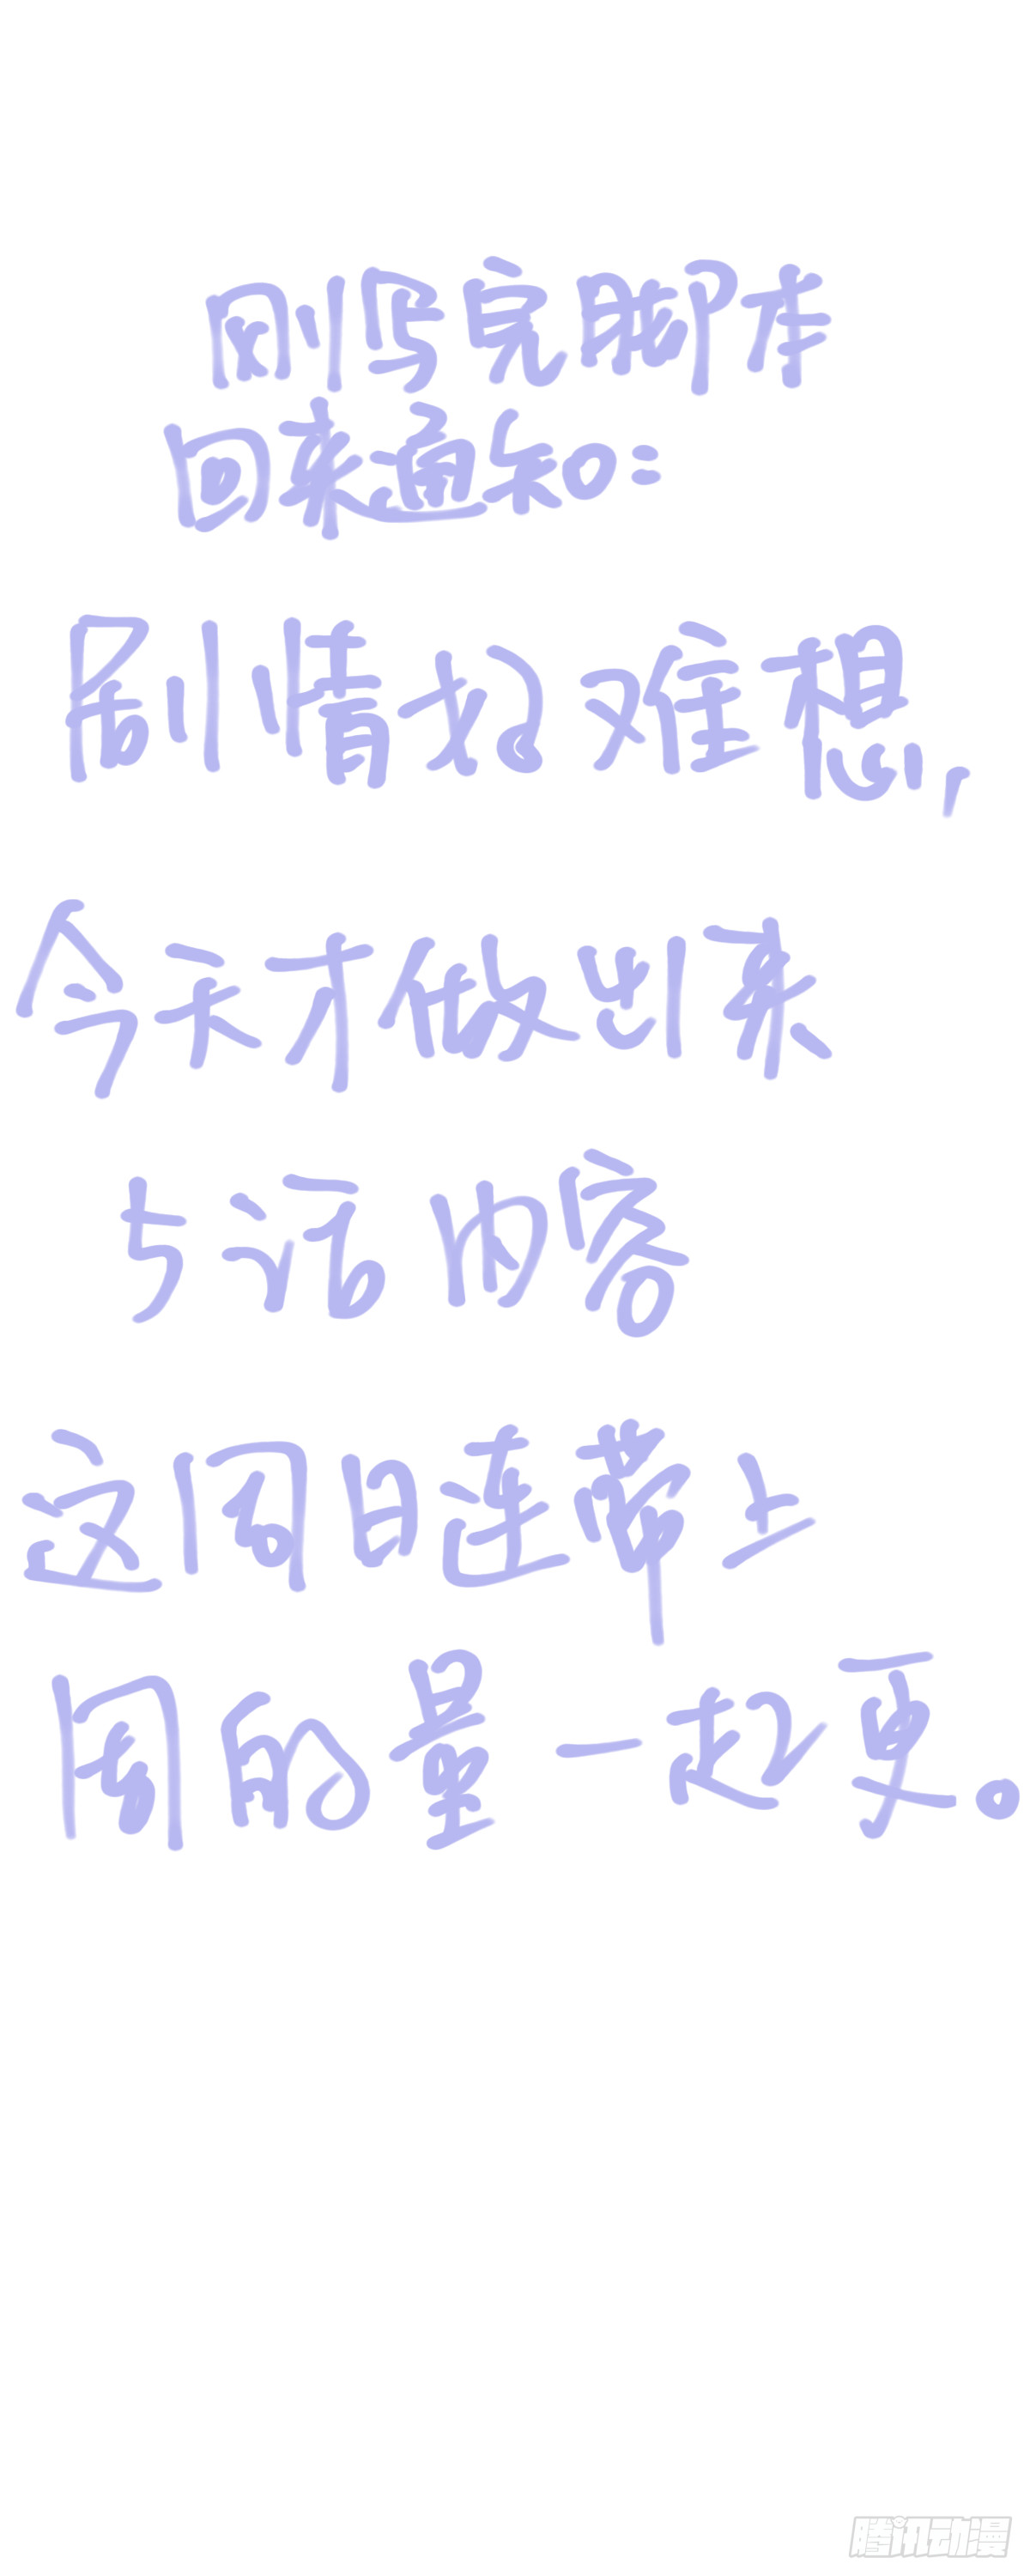 刚写完脚本
回来通知:
剧情好难想,
今天才做出来
5话内容
这周日连带上
周的量一起更。
腾讯动漫